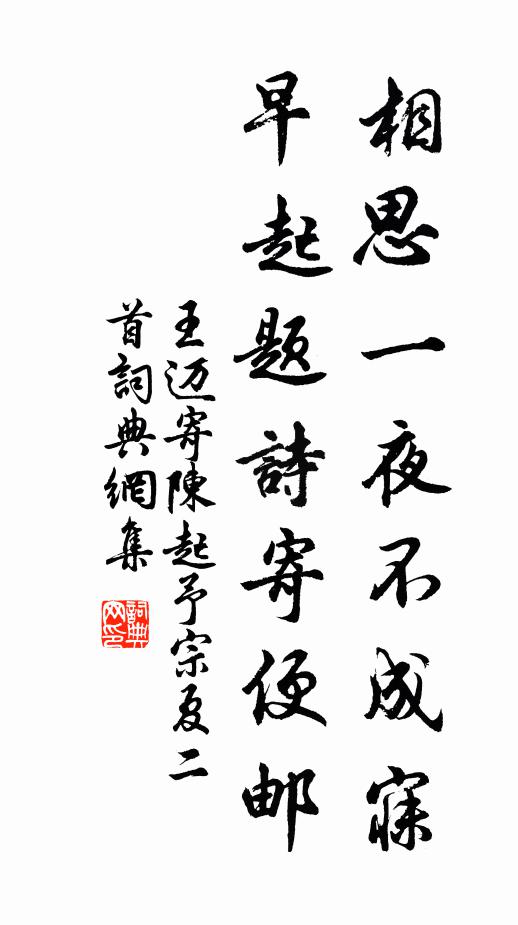 相思一夜不成寐
早起題詩寄便邮
王迈寄陳起予宗夏二
首詞典網集
詞典
网印